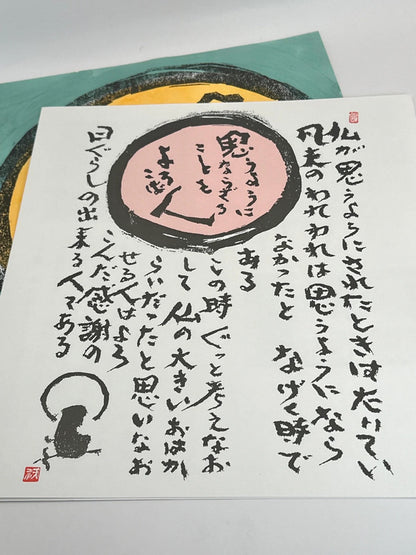 思うように
ならざる
ことを
よろこぶ
人
仏が思うようにされたときはたいてい
凡夫のわれわれは思うようになら
なかったと なげく時で
ある
この時ぐっと考えなお
して 仏の大きいおはか
らいだったと思いなお
せる人はよろ
こんだ感謝の
日ぐらしの出来る人である